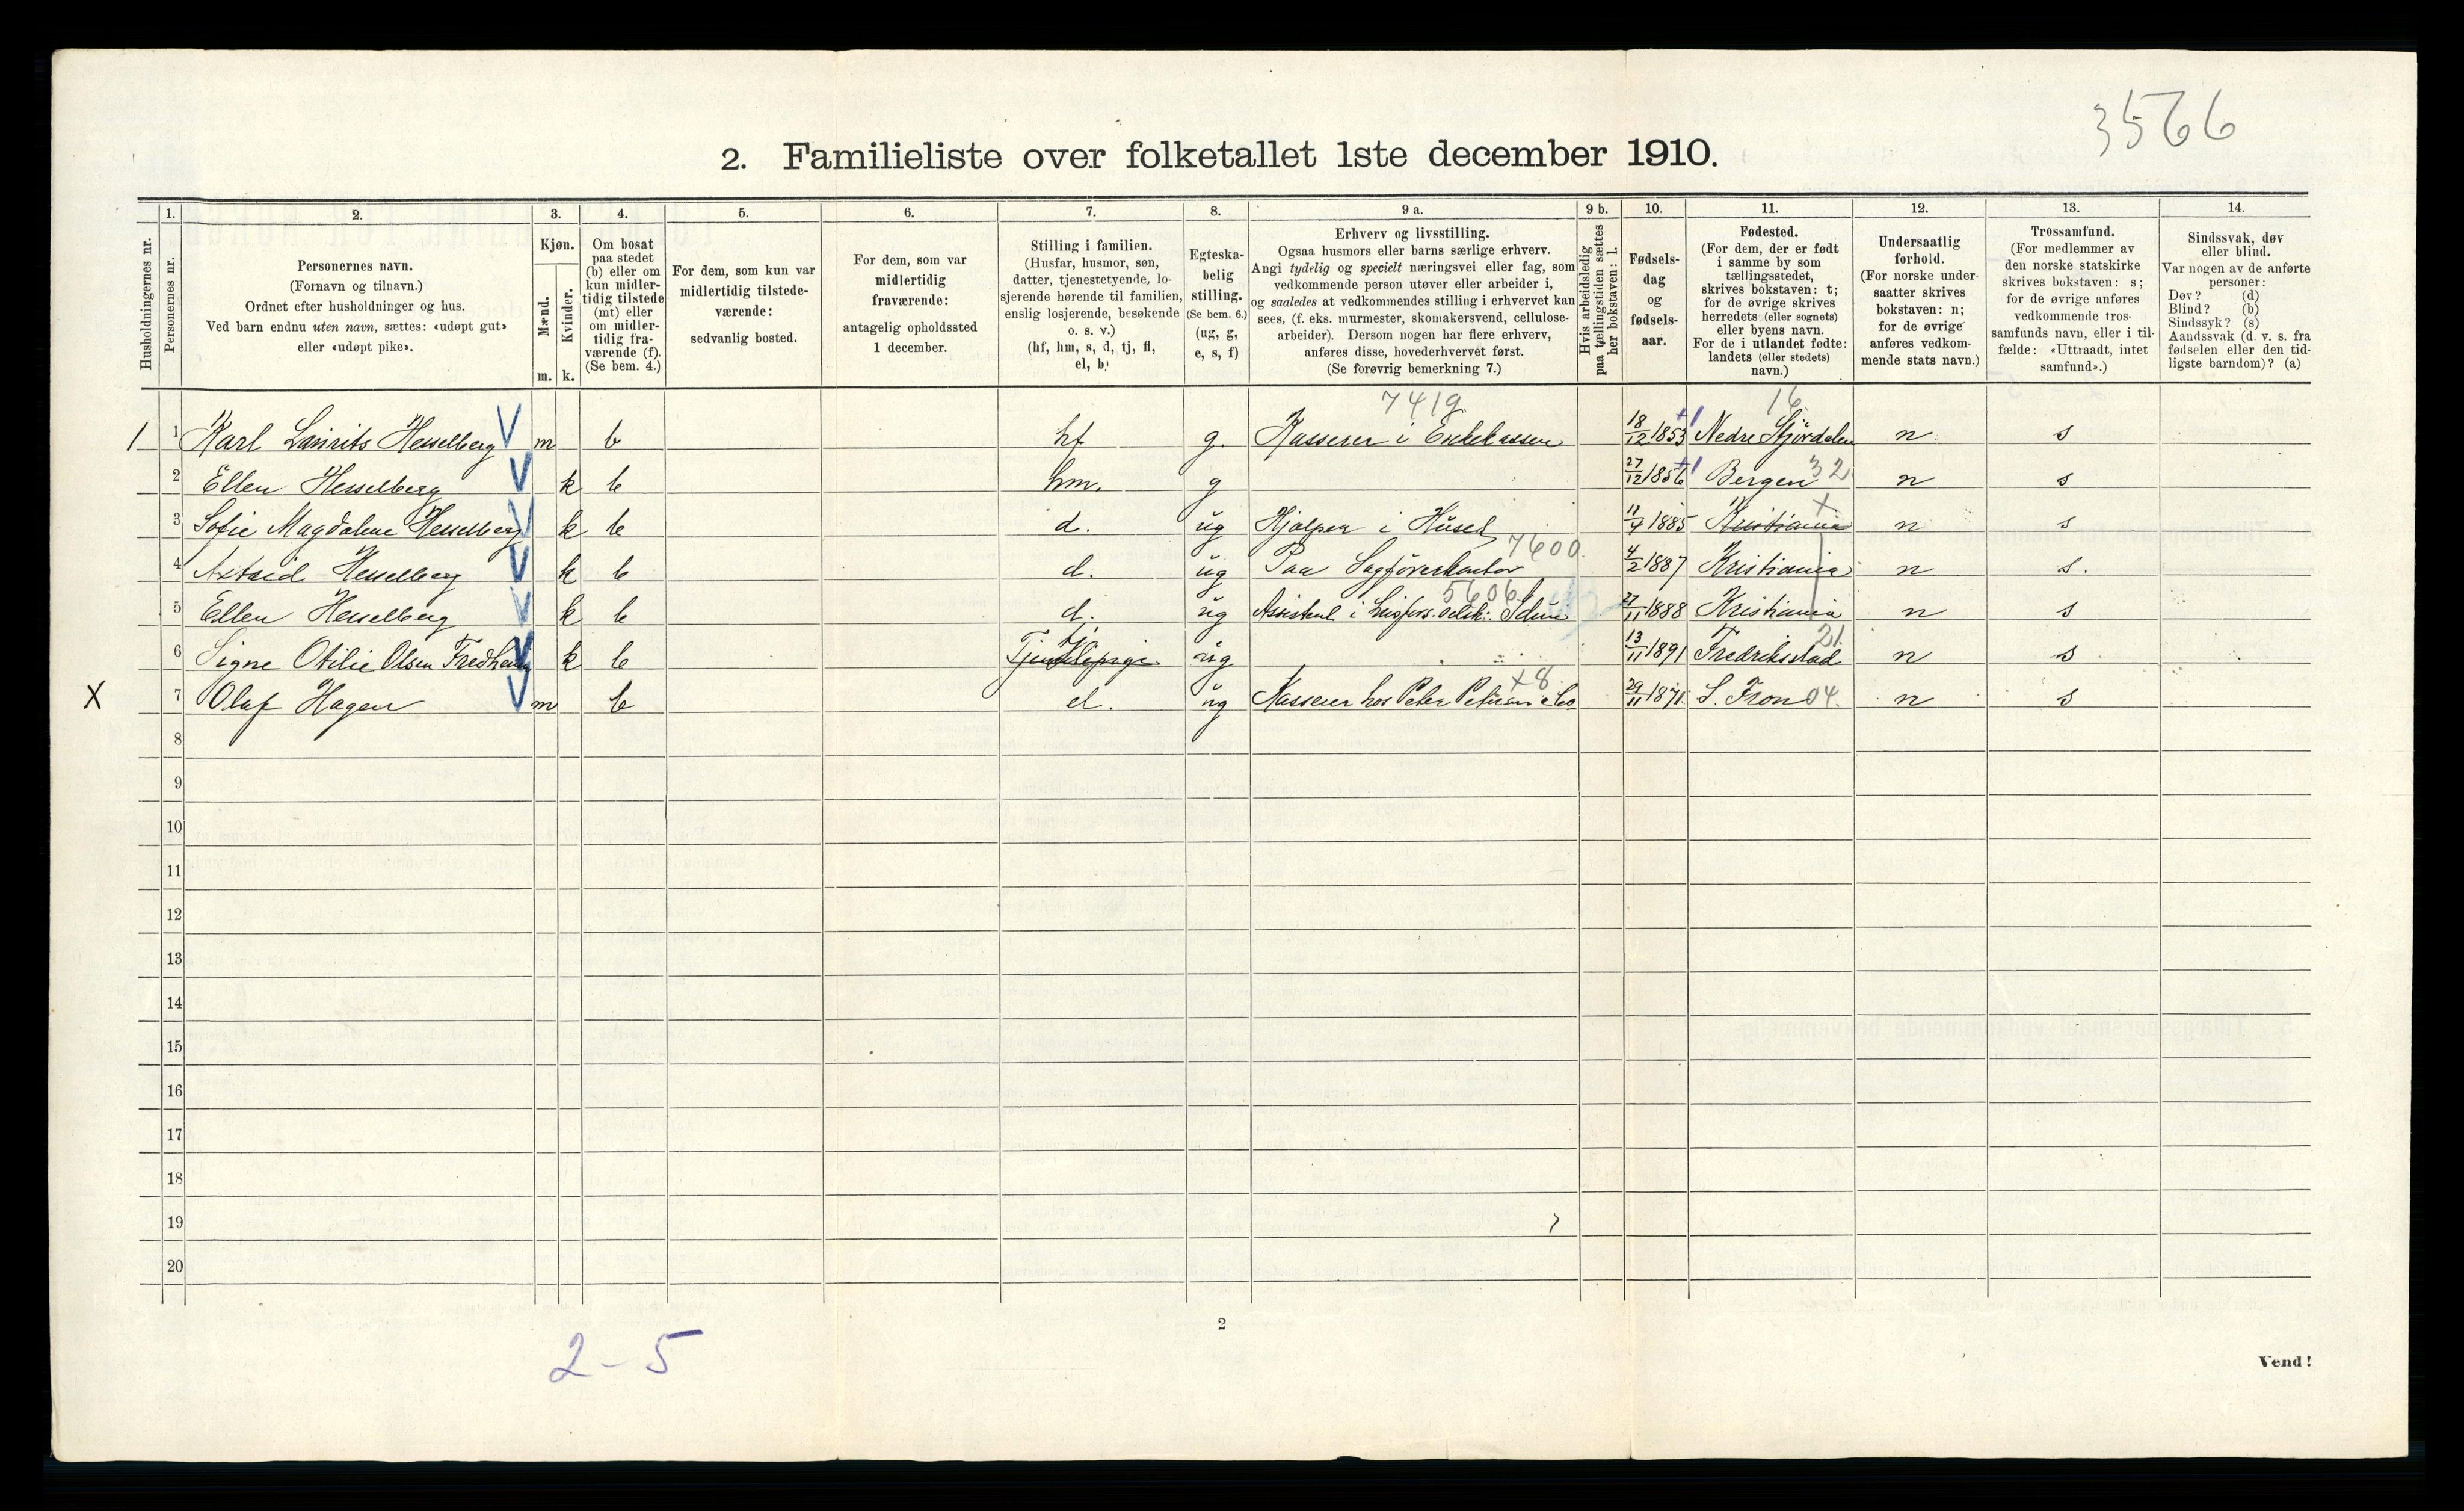 3566
2. Familieliste over folketallet 1ste december 1910.
Husholdningernes nr.
1. Personernes nr.
2. Personernes navn. (Fornavn og tilnavn.) Ordnet efter husholdninger og hus. Ved barn endnu uten navn, sættes: «udøpt gut» eller «udøpt pike».
3. Kjøn. Mænd. m. Kvinder. k.
4. Om bosat paa stedet (b) eller om kun midlertidig tilstede (mt) eller om midlertidig fraværende (f). (Se bem. 4.)
5. For dem, som kun var midlertidig tilstedeværende: sedvanlig bosted.
6. For dem, som var midlertidig fraværende: antagelig opholdssted 1 december.
7. Stilling i familien. (Husfar, husmor, søn, datter, tjenestetyende, losjerende hørende til familien, enslig losjerende, besøkende o. s. v.) (hf, hm, s, d, tj, fl, el, b)
8. Egteskabelig stilling. (Se bem. 6.) (ug, g, e, s, f)
9 a. Erhverv og livsstilling. Ogsaa husmors eller barns særlige erhverv. Angi tydelig og specielt næringsvei eller fag, som vedkommende person utøver eller arbeider i, og saaledes at vedkommendes stilling i erhvervet kan sees, (f. eks. murmester, skomakersvend, cellulosearbeider). Dersom nogen har flere erhverv, anføres disse, hovederhvervet først. (Se forøvrig bemerkning 7.)
9 b. Hvis arbeidsledig paa tællingstiden sættes her bokstaven: l.
10. Fødselsdag og fødselsaar.
11. Fødested. (For dem, der er født i samme by som tællingsstedet, skrives bokstaven: t; for de øvrige skrives herredets (eller sognets) eller byens navn. For de i utlandet fødte: landets (eller stedets) navn.)
12. Undersaatlig forhold. (For norske undersaatter skrives bokstaven: n; for de øvrige anføres vedkommende stats navn.)
13. Trossamfund. (For medlemmer av den norske statskirke skrives bokstaven: s; for de øvrige anføres vedkommende trossamfunds navn, eller i tilfælde: «Uttraadt, intet samfund».)
14. Sindssvak, døv eller blind. Var nogen av de anførte personer: Døv? (d) Blind? (b) Sindssyk? (s) Aandssvak (d. v. s. fra fødselen eller den tidligste barndom)? (a)
7419 16
1 1 Karl Lauritz Hesselberg V m b hf g. Kasserer i Enkekassen 18/12 1853 Nedre Stjørdalen n s
2 Ellen Hesselberg V k b hm. g 27/12 1856 Bergen 32 n s
3 Sofie Magdalene Hesselberg V k b d. ug Hjælper i Huset 11/4 1885 Kristiania x n s
4 Astrid Hesselberg V k b d. ug Paa Sagførerkontor 7600 4/2 1887 Kristiania n s.
5 Ellen Hesselberg V k b d. ug Assistent i Livsfors. selsk: Idun 5606 27/11 1888 Kristiania n s
6 Signe Otilie Olsen Fredheim V k b Tjenestepige tj ug 13/11 1891 Fredriksstad 21 n s
X 7 Olaf Hagen V m b el. ug Kasserer hos Peter Petersen & Co x8 29/11 1871 S. Fron 04. n s
8
9
10
11
12
13
14
15
16
17
18
19
20
2
2-5
Vend!